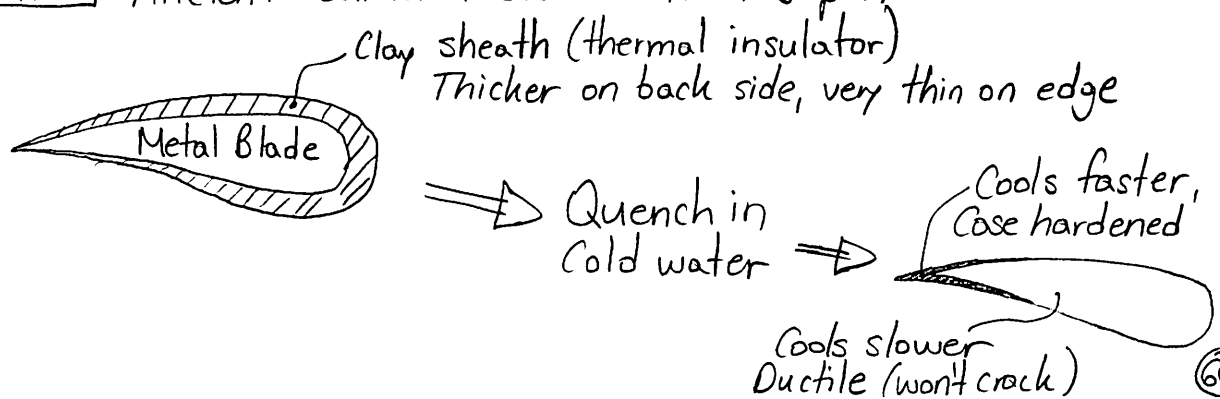 Clay sheath (thermal insulator)
Thicker on back side, very thin on edge
Metal Blade
Quench in
Cold water
Cools faster,
Case hardened
Cools slower
Ductile (won't crack)